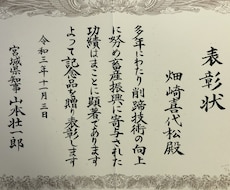 表彰状
畑崎喜代松殿
多年にわたり削蹄技術の向上
に努め畜産振興に寄与された
功績はまことに顕著であります
よって記念品を贈り表彰します
令和三年十一月三日
宮城県知事 山本壮一郎